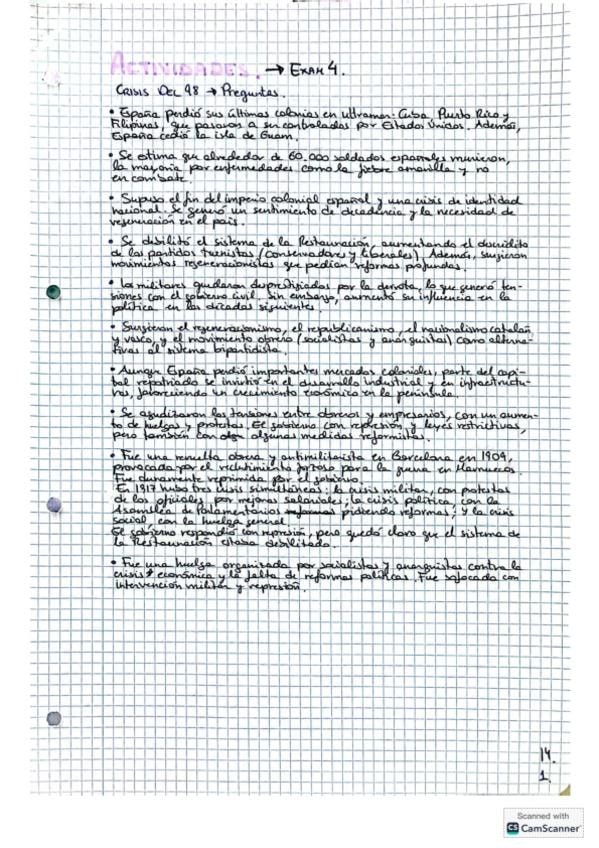 ACTIVIDADES. → EXAM 4.
CRISIS DEL 98 → Preguntas.
• España perdió sus últimas colonias en ultramar: Cuba, Puerto Rico y
Filipinas, que pasaron a ser controladas por Estados Unidos. Además,
España cedió la isla de Guam.
• Se estima que alrededor de 60.000 soldados españoles murieron,
la mayoría por enfermedades como la fiebre amarilla y no
en combate.
• Supuso el fin del imperio colonial español y una crisis de identidad
nacional. Se generó un sentimiento de decadencia y la necesidad de
regeneración en el país.
• Se debilitó el sistema de la Restauración, aumentando el descrédito
de los partidos turnistas (conservadores y liberales). Además, surgieron
movimientos regeneracionistas que pedían reformas profundas.
• Los militares quedaron desprestigiados por la derrota, lo que generó ten-
siones con el gobierno civil. Sin embargo, aumentó su influencia en la
política en las décadas siguientes.
• Surgieron el regeneracionismo, el republicanismo, el nacionalismo catalán
y vasco, y el movimiento obrero (socialistas y anarquistas) como alterna-
tivas al sistema bipartidista.
• Aunque España perdió importantes mercados coloniales, parte del capi-
tal repatriado se invirtió en el desarrollo industrial y en infraestructu-
ras, favoreciendo un crecimiento económico en la península.
• Se agudizaron las tensiones entre obreros y empresarios, con un aumen-
to de huelgas y protestas. El gobierno con represión y leyes restrictivas,
pero también con algunas medidas reformistas.
• Fue una revuelta obrera y antimilitarista en Barcelona en 1909,
provocada por el reclutamiento forzoso para la guerra en Marruecos.
Fue duramente reprimida por el gobierno.
En 1917 hubo tres crisis simultáneas: la crisis militar, con protestas
de los oficiales por mejoras salariales; la crisis política con la
Asamblea de Parlamentarios pidiendo reformas; y la crisis
social, con la huelga general.
El gobierno respondió con represión, pero quedó claro que el sistema de
la Restauración estaba debilitado.
• Fue una huelga organizada por socialistas y anarquistas contra la
crisis económica y la falta de reformas políticas. Fue sofocada con
intervención militar y represión.
14.
1.
Scanned with
CS CamScanner